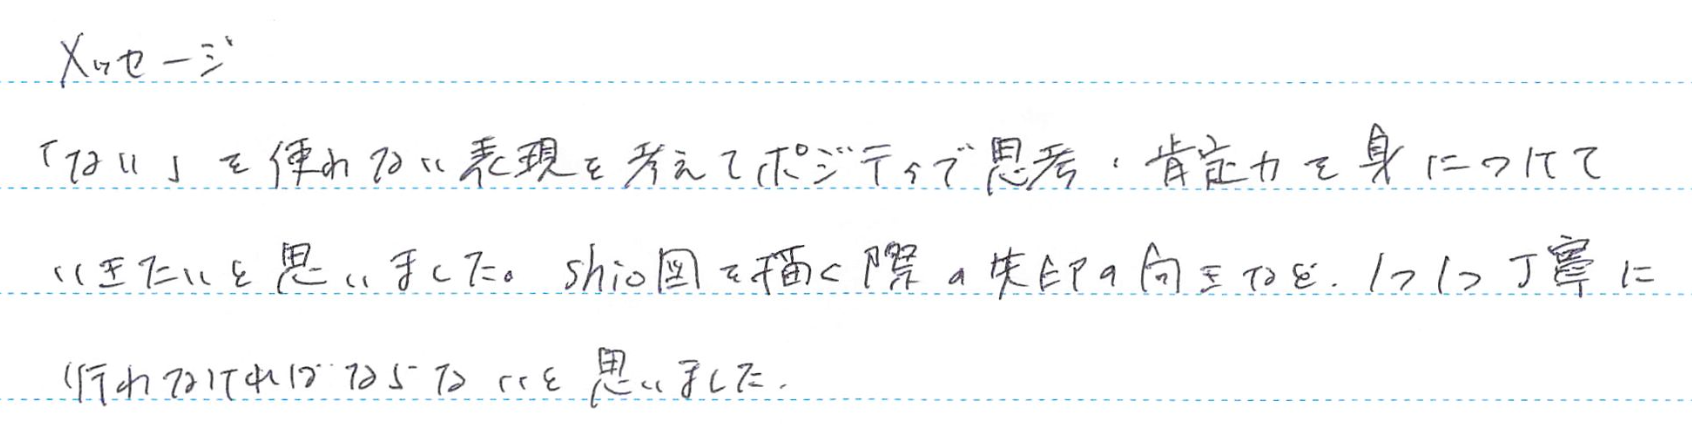 メッセージ
「ない」を使わない表現を考えてポジティブ思考・肯定力を身につけて
いきたいと思いました。shio図を描く際の矢印の向きなど、1つ1つ丁寧に
行わなければならないと思いました。